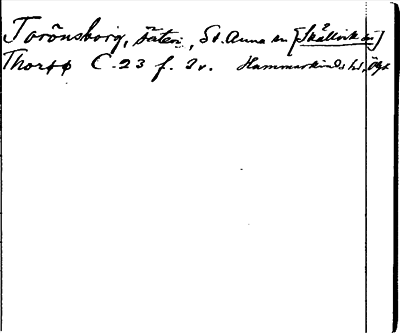 Torönsborg, säteri, St. Anna sn [Skällvik sn]
Thorpø C. 23 f. 2v. Hammarkinds hd, Ögl